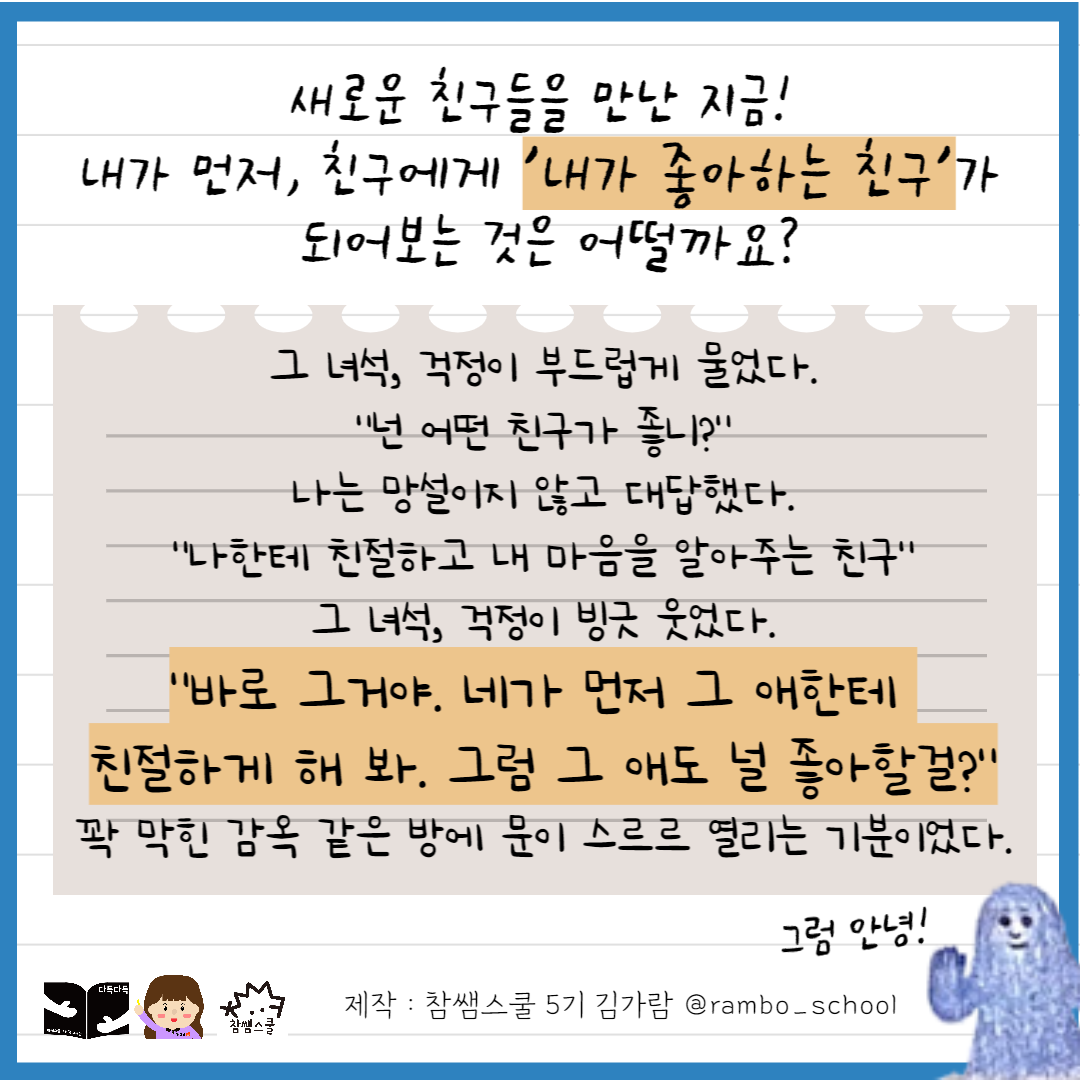 새로운 친구들을 만난 지금!
내가 먼저, 친구에게 '내가 좋아하는 친구'가
되어보는 것은 어떨까요?
그 녀석, 걱정이 부드럽게 물었다.
"넌 어떤 친구가 좋니?"
나는 망설이지 않고 대답했다.
"나한테 친절하고 내 마음을 알아주는 친구"
그 녀석, 걱정이 빙긋 웃었다.
"바로 그거야. 네가 먼저 그 애한테
친절하게 해 봐. 그럼 그 애도 널 좋아할걸?"
꽉 막힌 감옥 같은 방에 문이 스르르 열리는 기분이었다.
그럼 안녕!
다독다독
참쌤스쿨
제작 : 참쌤스쿨 5기 김가람 @rambo_school